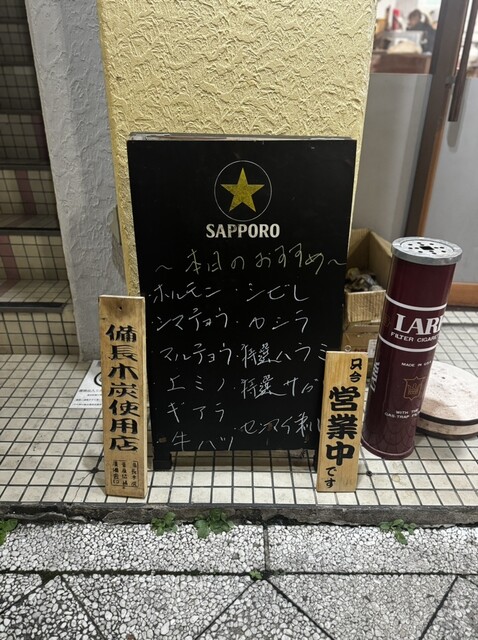 SAPPORO
～本日のおすすめ～
・ホルモン ・シビレ
・シマチョウ ・カシラ
・マルチョウ ・特選ハラミ
・エミノ ・特選サガ
・ギアラ ・センマイ刺し
・牛ハツ
備長木炭使用店
只今
営業中
です
LAR
FILTER CIGARE
MADE IN
WITH THE